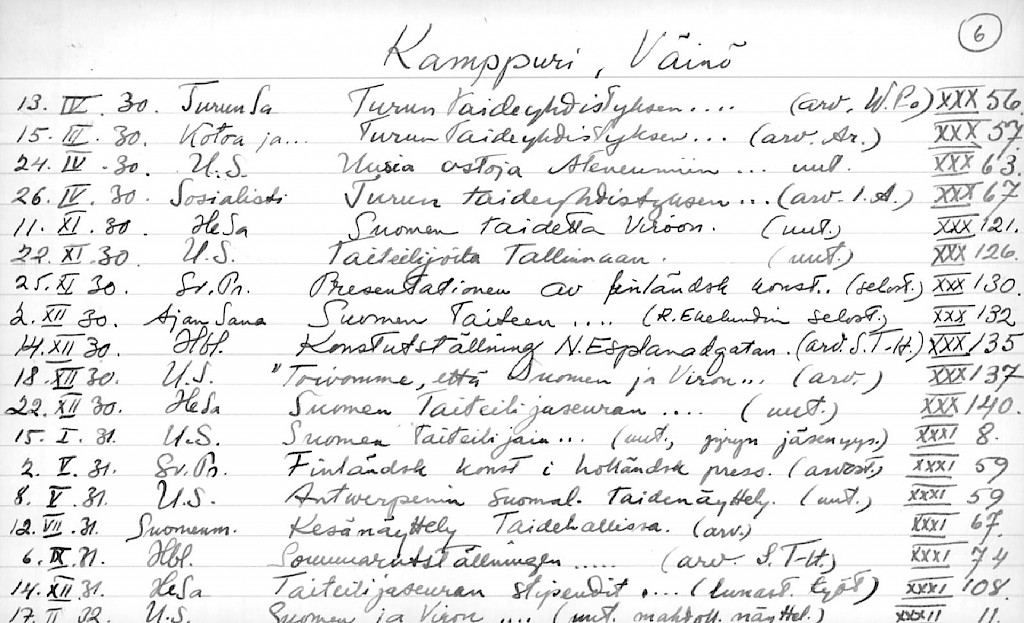 6
Kamppuri, Väinö
13. IV. 30. TurunSa Turun taideyhdistyksen.... (arv. W.P.o) XXX 56
15. III. 30. Kotoa ja... Turun taideyhdistyksen... (arv. Ar.) XXX 57.
24. IV. 30. U.S. Uusia ostoja Ateneumiin... uut. XXX 63.
26. IV. 30. Sosialisti Turun taideyhdistyksen... (arv. I.A.) XXX 67
11. XI. 30. HeSa Suomen taidetta Viroon. (uut.) XXX 121.
22. XI. 30. U.S. Taiteilijoita Tallinnaan. (uut.) XXX 126.
25. XI 30. Sv.Pr. Presentationen av finländsk konst.. (selost.) XXX 130.
2. XII 30. Ajan Sana Suomen Taiteen..... (R. Ekelundin selost.) XXX 132
14. XII 30. Hbl. Konstutställning N. Esplanadgatan. (arv. S.T-H.) XXX 135
18. XII 30. U.S. "Toivomme, että Suomen ja Viron... (arv.) XXX 137
22. XII 30. HeSa Suomen Taiteilijaseuran.... (uut.) XXX 140.
15. I. 31. U.S. Suomen Taiteilijain... (uut., jäsenyys.) XXXI 8.
2. V. 31. Sv.Pr. Finländsk konst i holländsk press. (arvost.) XXXI 59
8. V 31. U.S. Antwerpenin suomal. taidenäyttely. (uut.) XXXI 59
12. VII. 31. Suomenm. Kesänäyttely Taidehallissa. (arv.) XXXI 67.
6. IX 31. Hbl. Sommarutställningen...... (arv. S.T-H.) XXXI 74
14. XII 31. HeSa Taiteilijaseuran stipendit.... (lunast. työt) XXXI 108.
17. II 32. U.S. Suomen ja Viron.... (uut. mahdoll. näyttel.) XXXII 11.